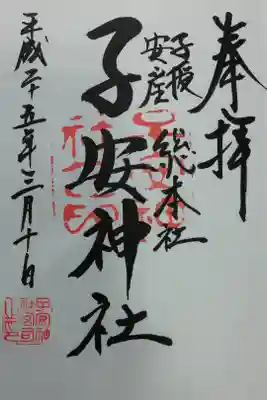 奉拝
子授
安産
総本社
子安神社
平成二十五年三月十日